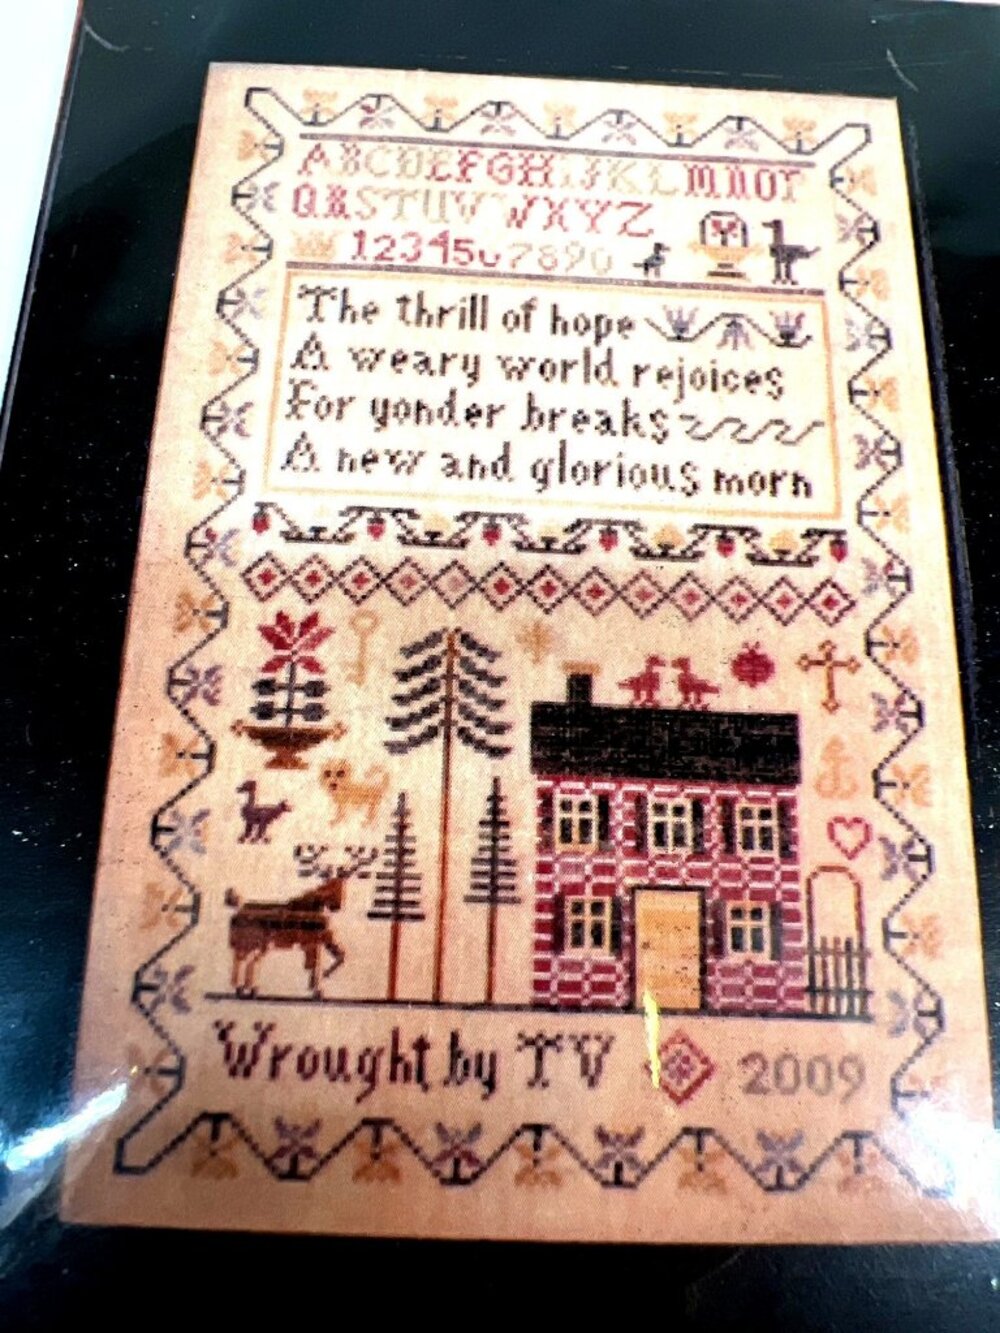 ABCDEFGHIJKLMNOP
QRSTUVWXYZ
1234567890
The thrill of hope
A weary world rejoices
For yonder breaks
A new and glorious morn
Wrought by TV 2009